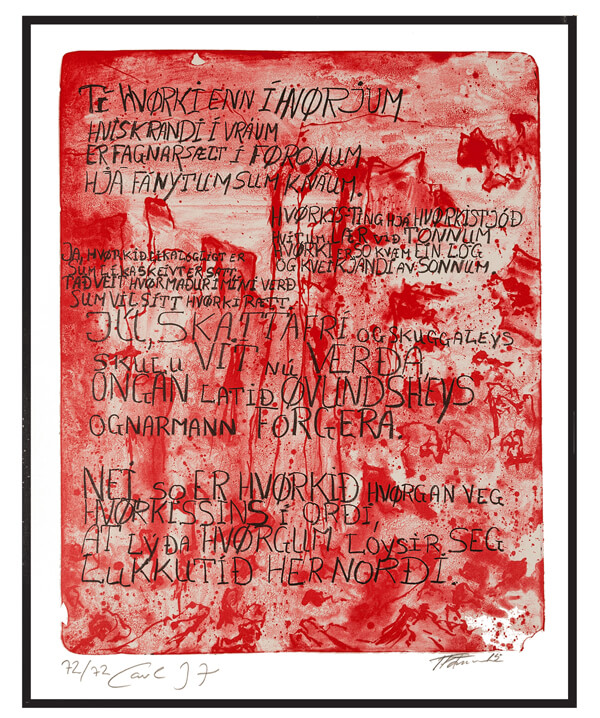 Tí HVØRKI ENN Í HVØRJUM
HVISKRANDI Í VRÁUM
ER FAGNARSÆLT Í FØROYUM
HJÁ FÁNÝTUM SUM KNÁUM.
HVØRKISTING HJÁ HVØRKISTJÓÐ
VIT UM LÆR VIÐ TONNUM
HVØRKI ER SO KVÆM EIN LÓG
OG KVEIKJANDI AV SONNUM
JA, HVØRKIÐ LÍKA LÓGLIGT ER
SUM LÍKA SKEIVT ER SATT
TAÐ VEIT HVØR MAÐUR Í MÍNI VERÐ
SUM VIL SÍTT HVØRKI RÆTT
SKATTAFRÍ OG SKUGGALEYS
SKULU VIT NÚ VERÐA,
ONGAN LATIÐ ØVUNDSHEYS
OGNARMANN FORGERA.
NEI, SO ER HVØRKIÐ HVØRGAN VEG
HVØRKISSINS Í ORÐI,
AT LÝÐA HVØRGUM LOYSIR SEG
LUKKUTÍÐ HER NORÐI.
72/72